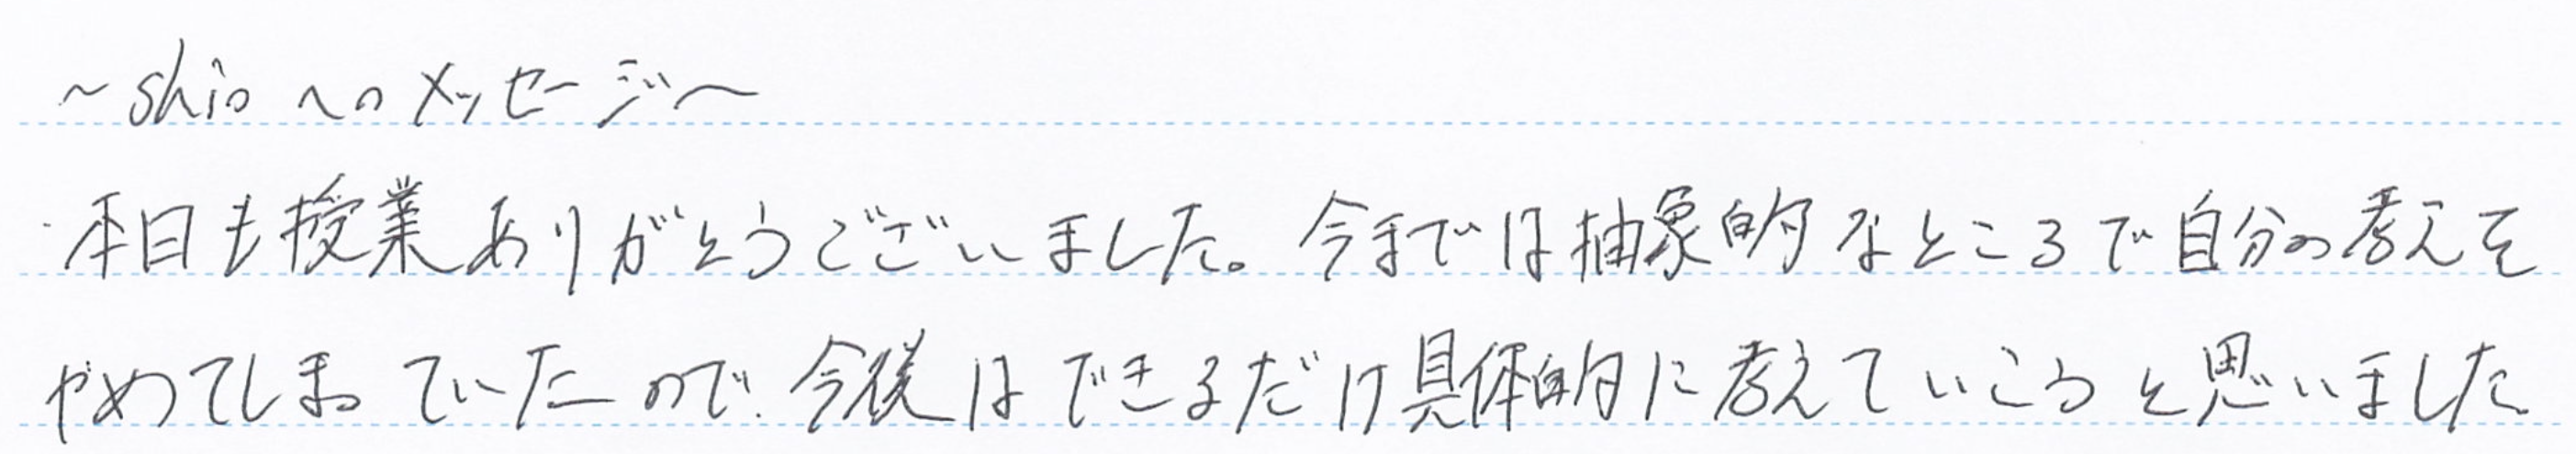 ~shioへのメッセージ~
本日も授業ありがとうございました。今までは抽象的なところで自分の考えを
やめてしまっていたので、今後はできるだけ具体的に考えていこうと思いました。